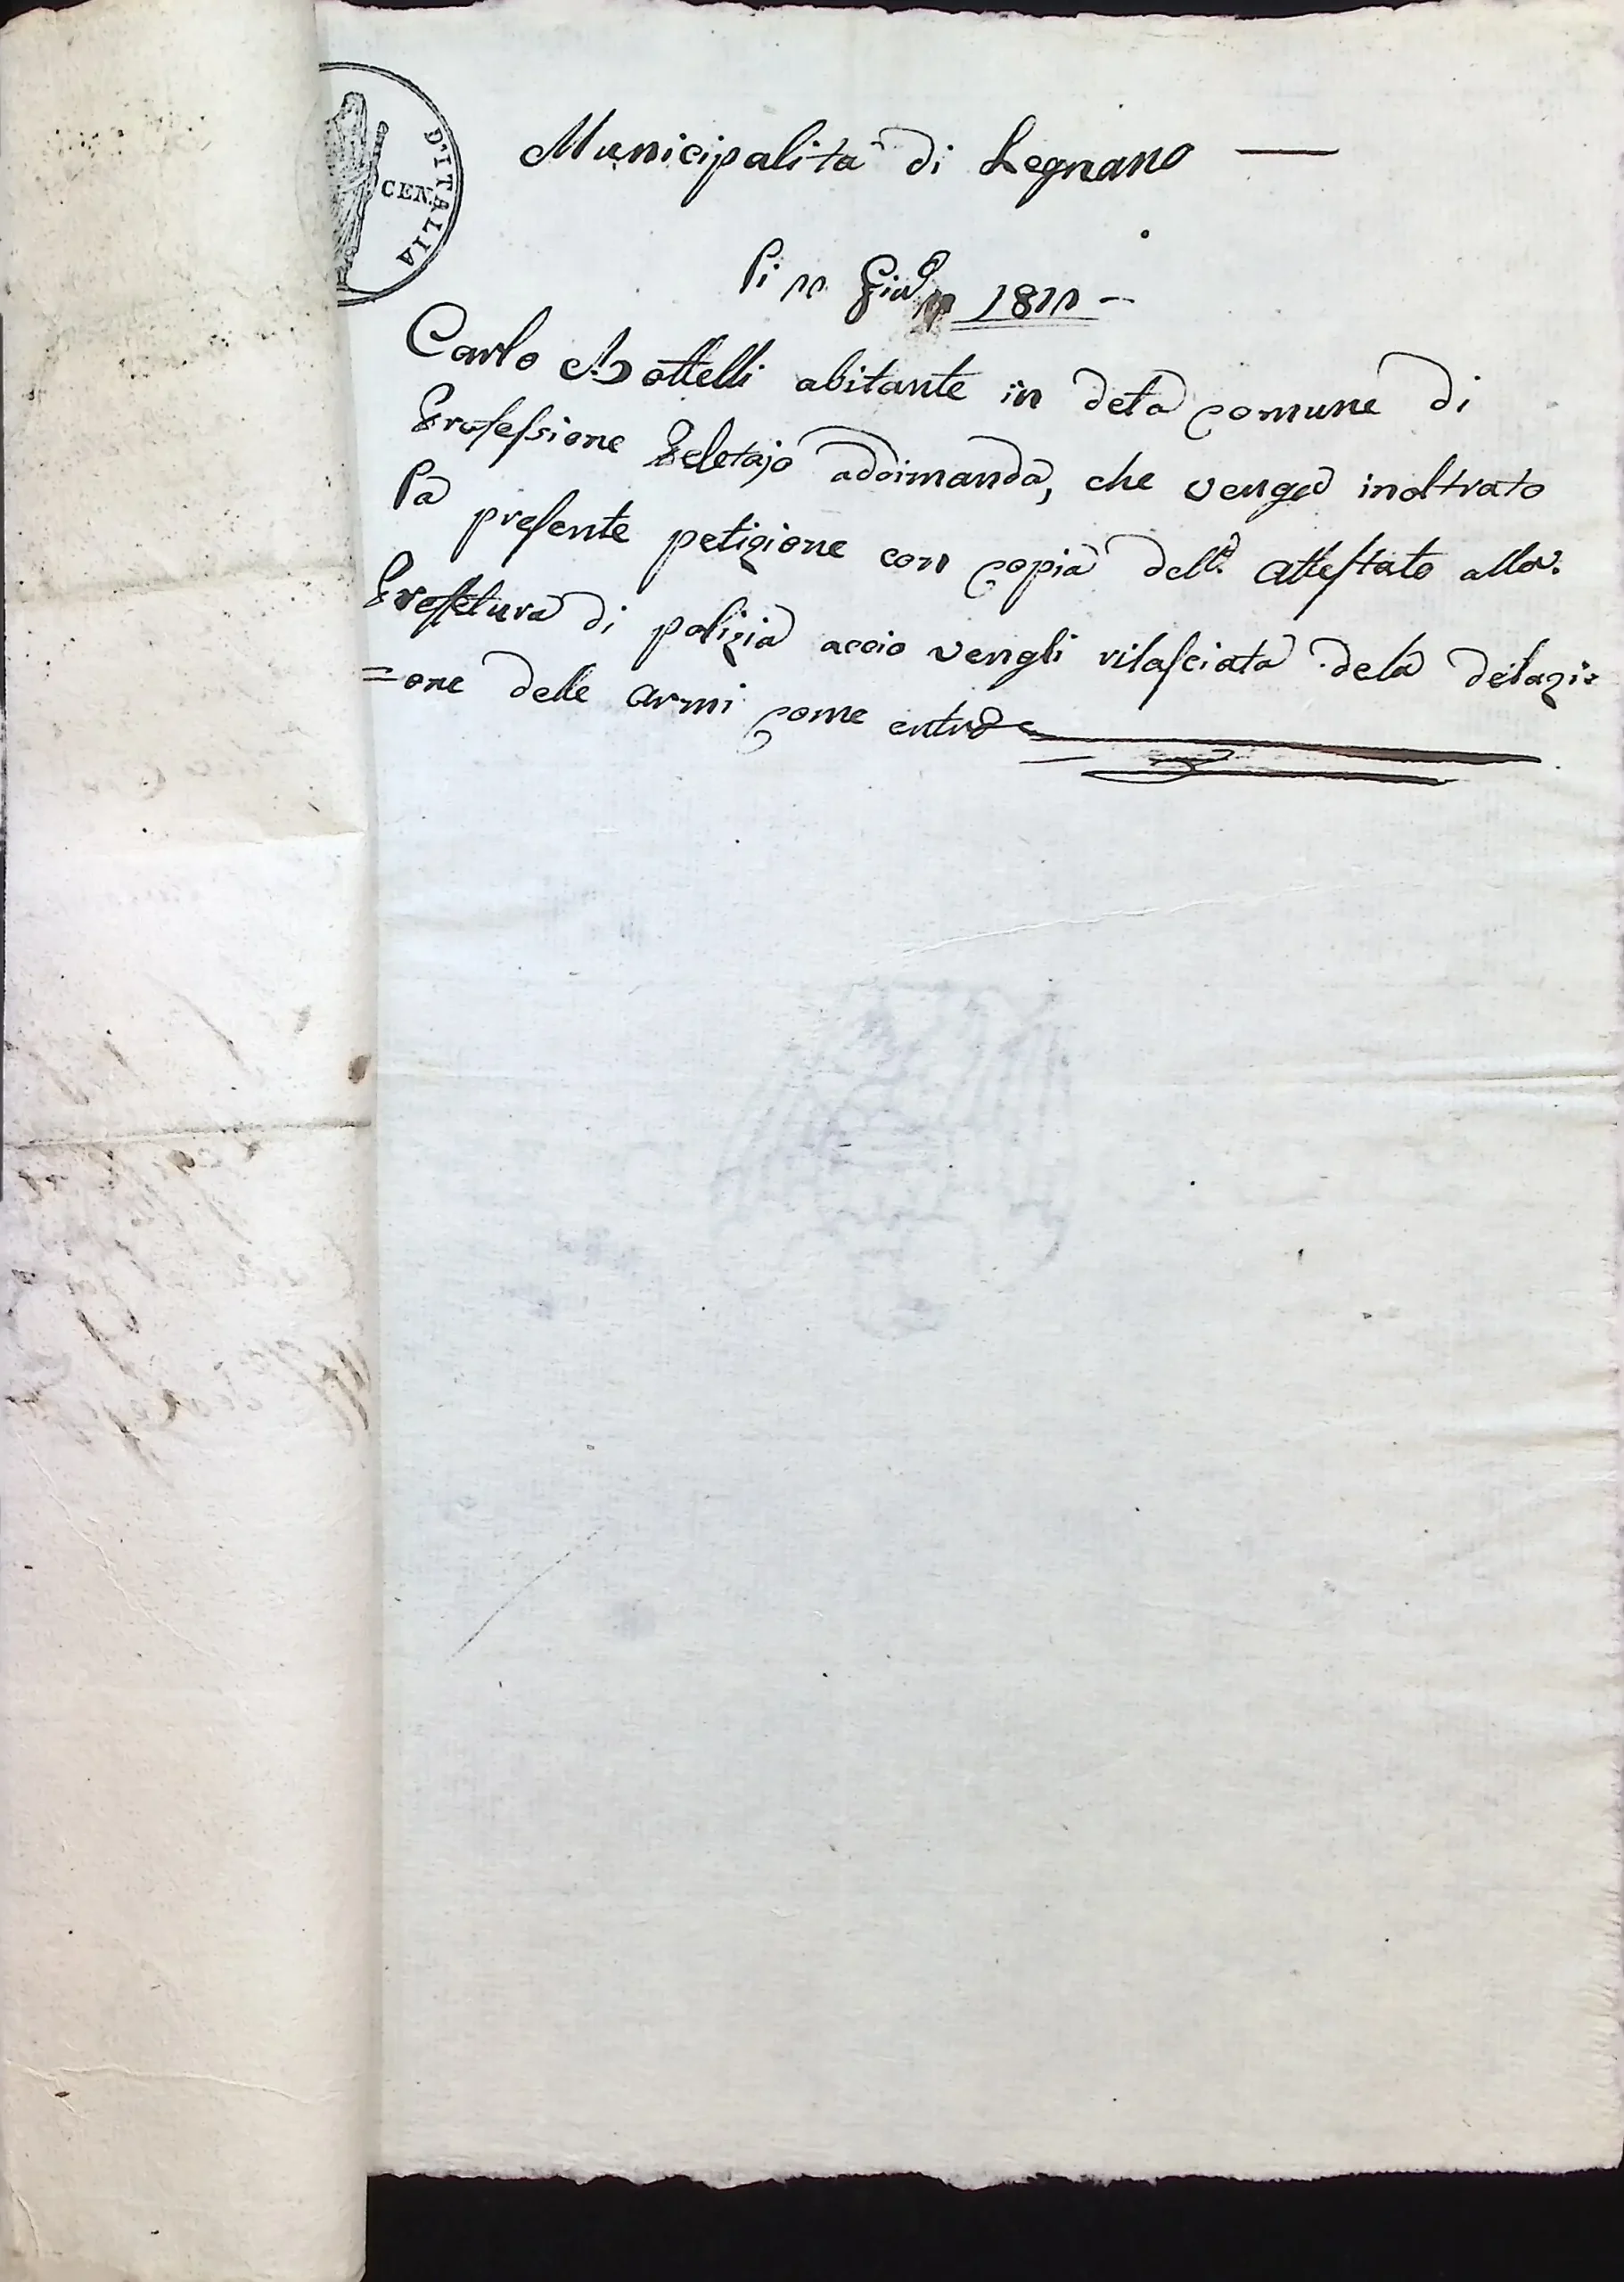 D'ITALIA
CEN.
Municipalità di Legnano
Li 11 Giu.º 1811
Carlo abitante in deta comune di
Professione addimanda, che venga inoltrato
la presente petizione con copia dell'. attestato alla
Prefetura di polizia accio vengli rilasciata dela delazi=
=one delle armi come entro